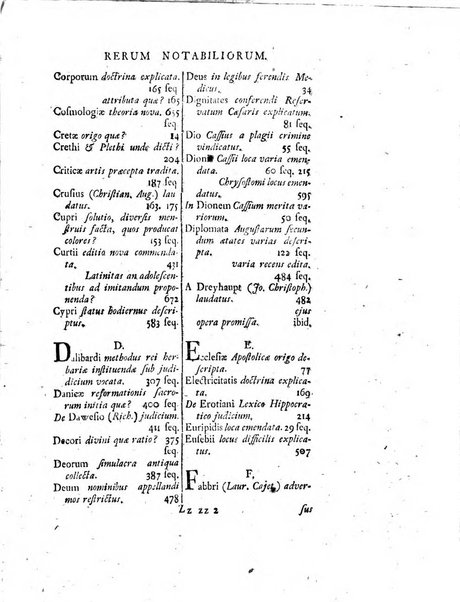 RERUM NOTABILIORUM.
Corporum doctrina explicata.
165 seq.
attributa quæ? 165
Cosmologiæ theoria nova. 635
seq.
Cretæ origo quæ? 14
Crethi & Plethi unde dicti?
204
Criticæ artis præcepta tradita.
187 seq.
Crusius (Christian. Aug.) lau
datus. 163. 175
Cupri solutio, diversis men-
struis facta, quos producat
colores? 153 seq.
Curtii editio nova commenda-
ta. 431
Latinitas an adolescen-
tibus ad imitandum propo-
nenda? 672
Cypri status hodiernus descri-
ptus. 583 seq.
D.
Dalibardi methodus rei her-
bariæ instituendæ sub judi-
dicium vocata. 307 seq.
Daniæ reformationis sacro-
rum initia quæ? 400 seq.
De Dawesio (Rich.) judicium.
411 seq.
Decori divini quæ ratio? 375
seq.
Deorum simulacra antiqua
collecta. 387 seq.
Deum nominibus appellandi
mos restrictus. 478
Deus in legibus ferendis Me-
dicus. 34
Dignitates conferendi Reser-
vatum Cæsaris explicatum.
81 seq.
Dio Cassius a plagii crimine
vindicatus. 55 seq.
Dionis Cassii loca varia emen-
data. 60 seq. 215
Chrysostomi locus emen-
datus. 595
In Dionem Cassium merita va-
riorum. 50 seq.
Diplomata Augustarum secun-
dum ætates varias descri-
pta. 122 seq.
varia recens edita.
484 seq.
A Dreyhaupt (Jo. Christoph.)
laudatus. 482
ejus
opera promissa. ibid.
E.
Ecclesiæ Apostolicæ origo de-
scripta. 77
Electricitatis doctrina explica-
ta. 169.
De Erotiani Lexico Hippocra-
tico judicium. 214
Euripidis loca emendata. 29 seq.
Eusebii locus difficilis explica-
tus. 507
F.
Fabbri (Laur. Cajet.) adver-
Zz zz 2 sus